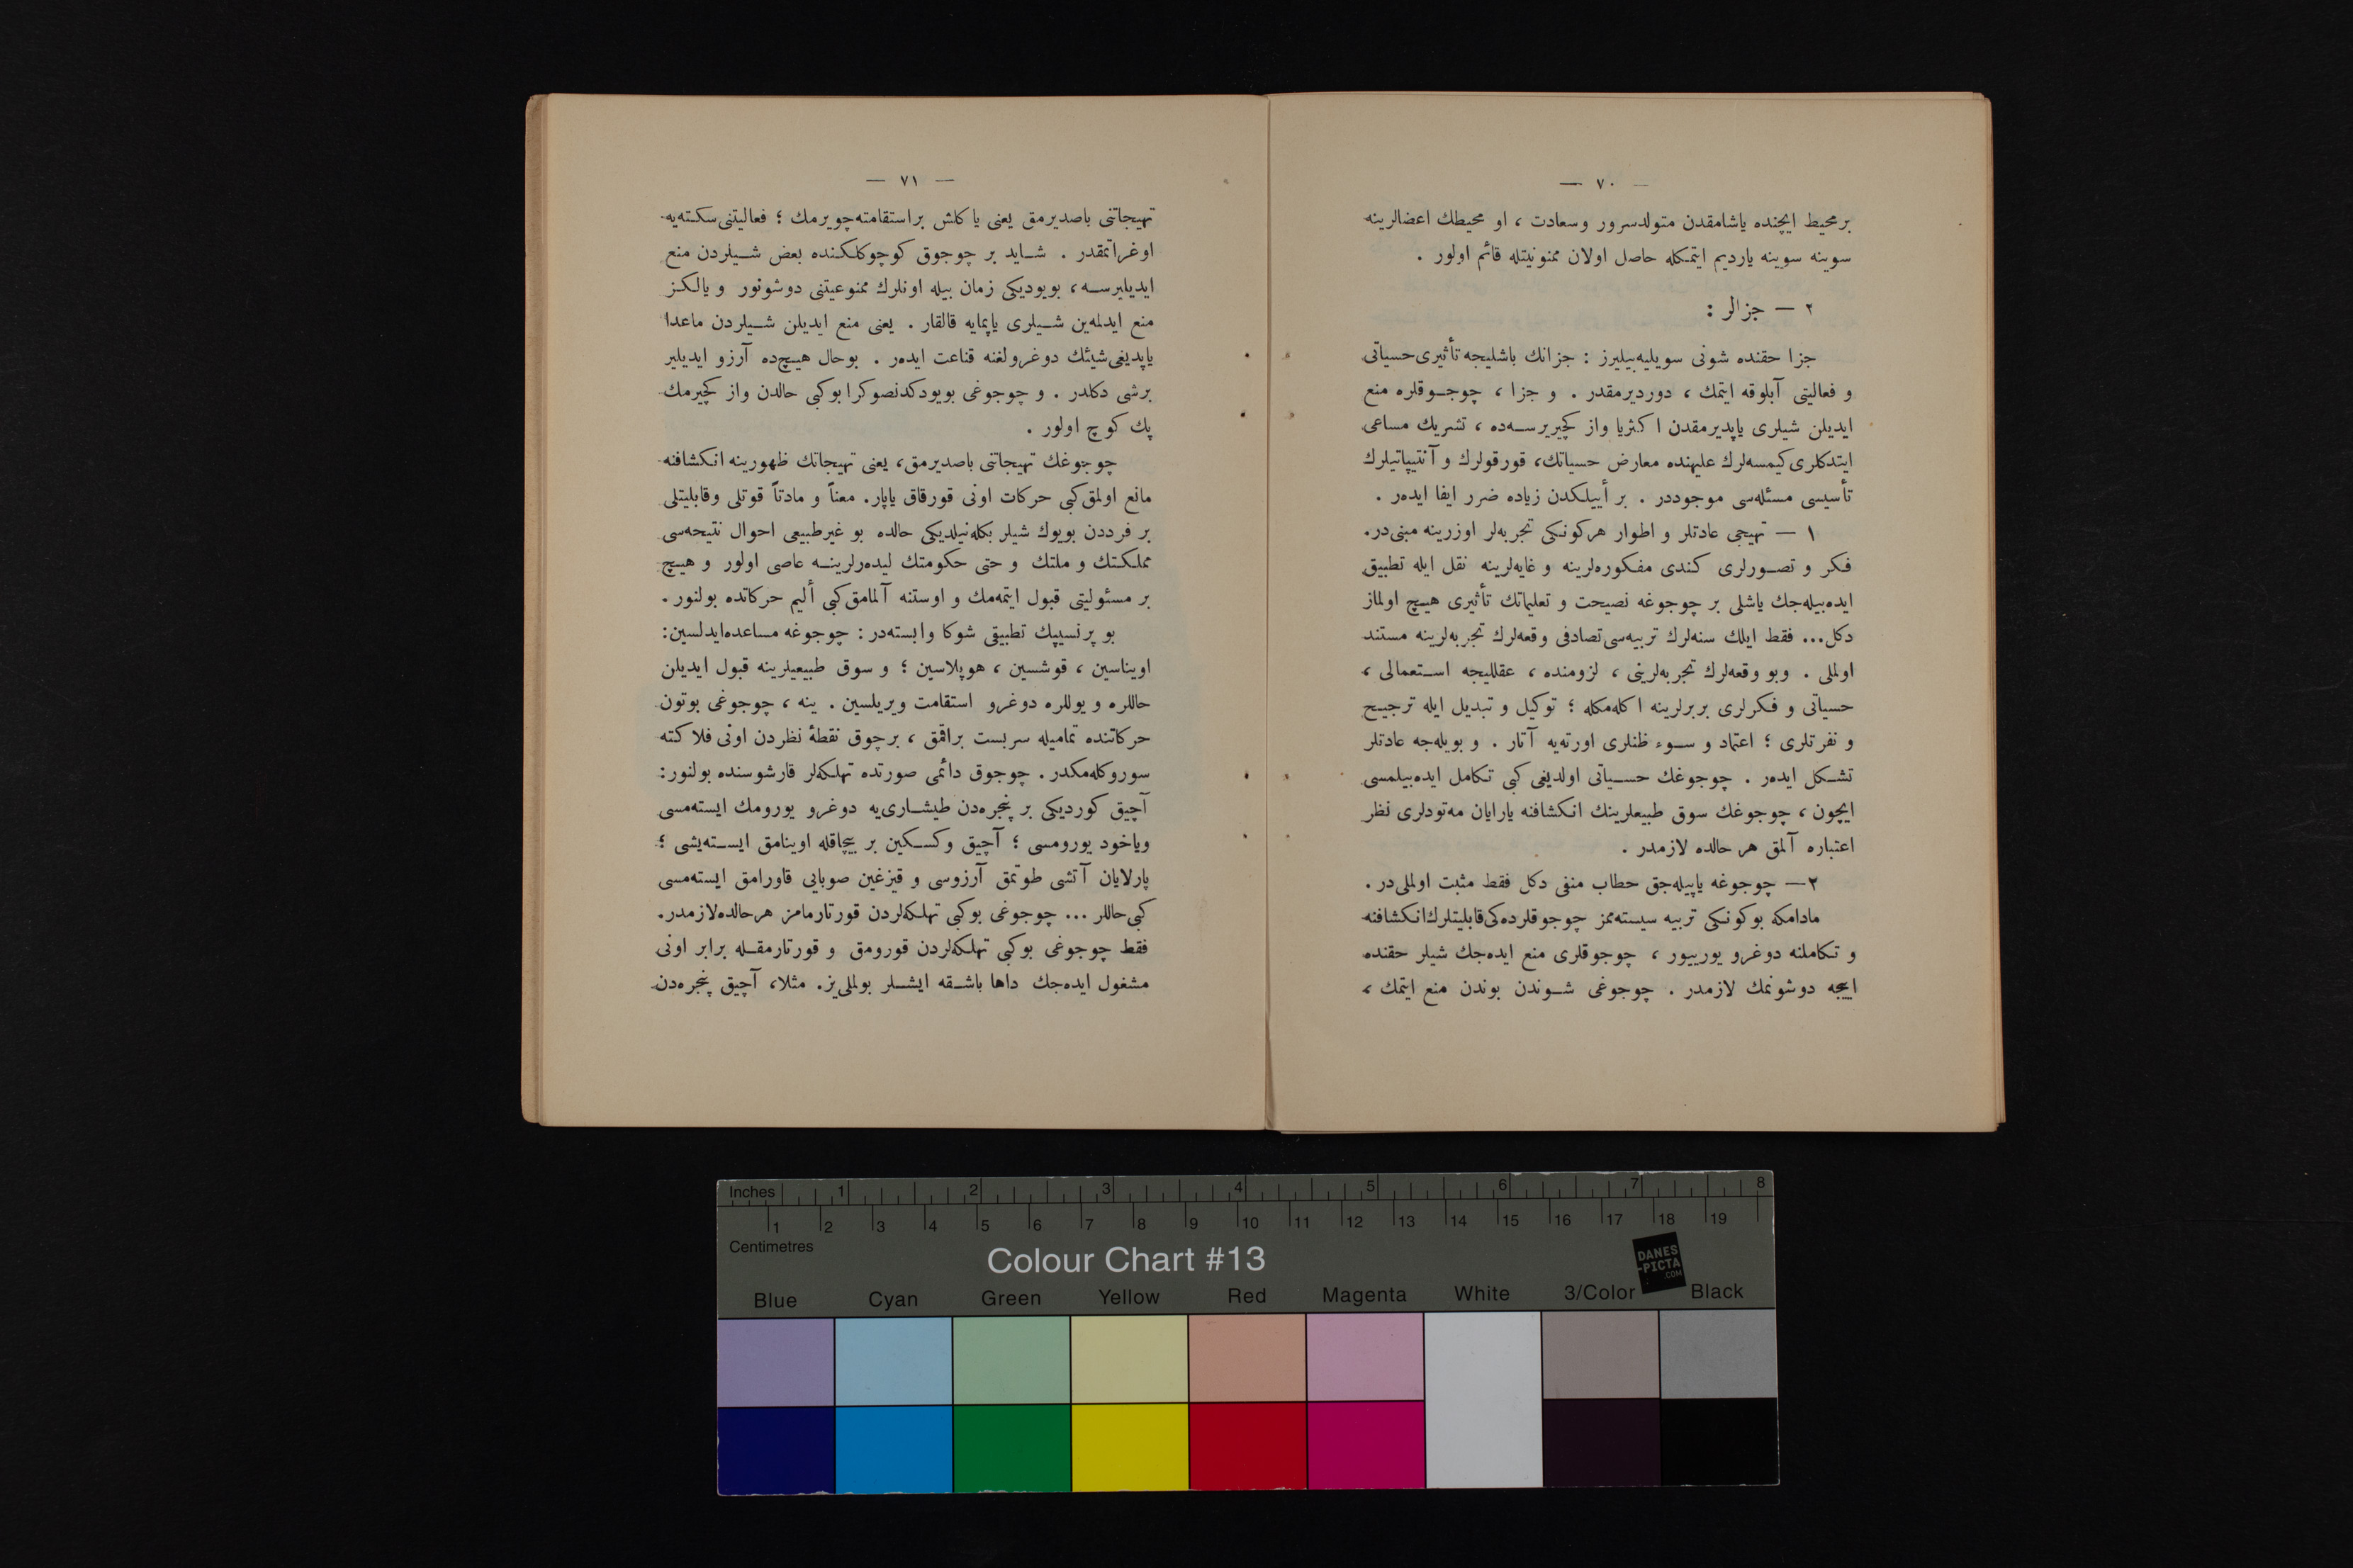 — ٧٠ —
بر محيط ايچنده ياشامقدن متولد سرور و سعادت ، او محيطك اعضالرينه
سوينه سوينه يارديم ايتمكله حاصل اولان ممنونيتله قائم اولور .
٢ — جزالر :
جزا حقنده شونى سويليه‌بيليرز : جزانك باشليجه تأثيرى حسياتى
و فعاليتى آبلوقه ايتمك ، دورديرمقدر . و جزا ، چوجوقلره منع
ايديلن شيلرى ياپديرمقدن اكثريا واز كچيريرسه‌ده ، تشريك مساعى
ايتدكلرى كيمسه‌لرك عليهنده معارض حسياتك، قورقولرك و آنتيپاتيلرك
تأسيسى مسئله‌سى موجوددر . بر أييلكدن زياده ضرر ايفا ايدەر .
١ — تهيجى عادتلر و اطوار هركونكى تجربه‌لر اوزرينه مبنى‌در.
فكر و تصورلرى كندى مفكوره‌لرينه و غايه‌لرينه نقل ايله تطبيق
ايده‌بيله‌جك ياشلى بر چوجوغه نصيحت و تعليماتك تأثيرى هيچ اولماز
دكل... فقط ايلك سنه‌لرك تربيه‌سى تصادفى وقعه‌لرك تجربه‌لرينه مستند
اولملى . وبو وقعه‌لرك تجربه‌لرينى ، لزومنده ، عقلليجه استعمالى ،
حسياتى و فكرلرى بربرلرينه اكله‌مكله ؛ توكيل و تبديل ايله ترجيح
و نفرتلرى ؛ اعتماد و سوء ظنلرى اورته‌يه آتار . و بويله‌جه عادتلر
تشكل ايدەر . چوجوغك حسياتى اولديغى كبى تكامل ايده‌بيلمسى
ايچون ، چوجوغك سوق طبيعلرينك انكشافنه يارايان مه‌تودلرى نظر
اعتباره آلمق هر حالده لازمدر .
٢— چوجوغه ياپيله‌جق خطاب منفى دكل فقط مثبت اولملى‌در .
مادامكه بوكونكى تربيه سيسته‌ممز چوجوقلرده‌كى قابليتلرك انكشافنه
و تكاملنه دوغرو يورييور ، چوجوقلرى منع ايده‌جك شيلر حقنده
اييجه دوشونمك لازمدر . چوجوغى شوندن بوندن منع ايتمك ،
— ٧١ —
تهيجاتنى باصديرمق يعنى ياكلش براستقامته چويرمك ؛ فعاليتنى سكته‌يه
اوغراتمقدر . شايد بر چوجوق كوچوكلكنده بعض شيلردن منع
ايديليرسه ، بويوديكى زمان بيله اونلرك ممنوعيتنى دوشونور و يالكز
منع ايدلمه‌ين شيلرى ياپمايه قالقار . يعنى منع ايديلن شيلردن ماعدا
ياپديغى شيئك دوغرولغنه قناعت ايدەر . بوحال هيچ‌ده آرزو ايديلير
برشى دكلدر . و چوجوغى بويودكدنصوكرا بوكبى حالدن واز كچيرمك
پك كوچ اولور .
چوجوغك تهيجاتنى باصديرمق، يعنى تهيجاتك ظهورينه انكشافنه
مانع اولمق كبى حركات اونى قورقاق ياپار. معناً و مادتاً قوتلى وقابليتلى
بر فرددن بويوك شيلر بكله‌نيلديكى حالده بو غيرطبيعى احوال نتيجه‌سى
مملكتك و ملتك و حتى حكومتك ليدەرلرينه عاصى اولور و هيچ
بر مسئوليتى قبول ايتمه‌مك و اوستنه آلمامق كبى أليم حركاتده بولنور.
بو پرنسيپك تطبيقى شوكا وابسته‌در : چوجوغه مساعده‌ايدلسين:
اويناسين ، قوشسين ، هوپلاسين ؛ و سوق طبيعيلرينه قبول ايديلن
حاللره و يوللره دوغرو استقامت ويريلسين . ينه ، چوجوغى بوتون
حركاتنده تماميله سربست براقمق ، برچوق نقطهٔ نظردن اونى فلاكته
سوروكله‌مكدر . چوجوق دائمى صورتده تهلكه‌لر قارشوسنده بولنور:
آچيق كورديكى بر پنجره‌دن طيشارى‌يه دوغرو يورومك ايسته‌مسى
وياخود يورومسى ؛ آچيق وكسكين بر بيچاقله اوينامق ايسته‌يشى ؛
پارلايان آتشى طوتمق آرزوسى و قيزغين صوبايى قاورامق ايسته‌مسى
كبى حاللر ... چوجوغى بوكبى تهلكه‌لردن قورتارمامز هرحالده‌لازمدر.
فقط چوجوغى بوكبى تهلكه‌لردن قورومق و قورتارمقله برابر اونى
مشغول ايده‌جك داها باشقه ايشلر بولملى‌يز. مثلا، آچيق پنجره‌دن
Inches 1 2 3 4 5 6 7 8
1 2 3 4 5 6 7 8 9 10 11 12 13 14 15 16 17 18 19
Centimetres
Colour Chart #13
DANES
-PICTA
.COM
Blue Cyan Green Yellow Red Magenta White 3/Color Black